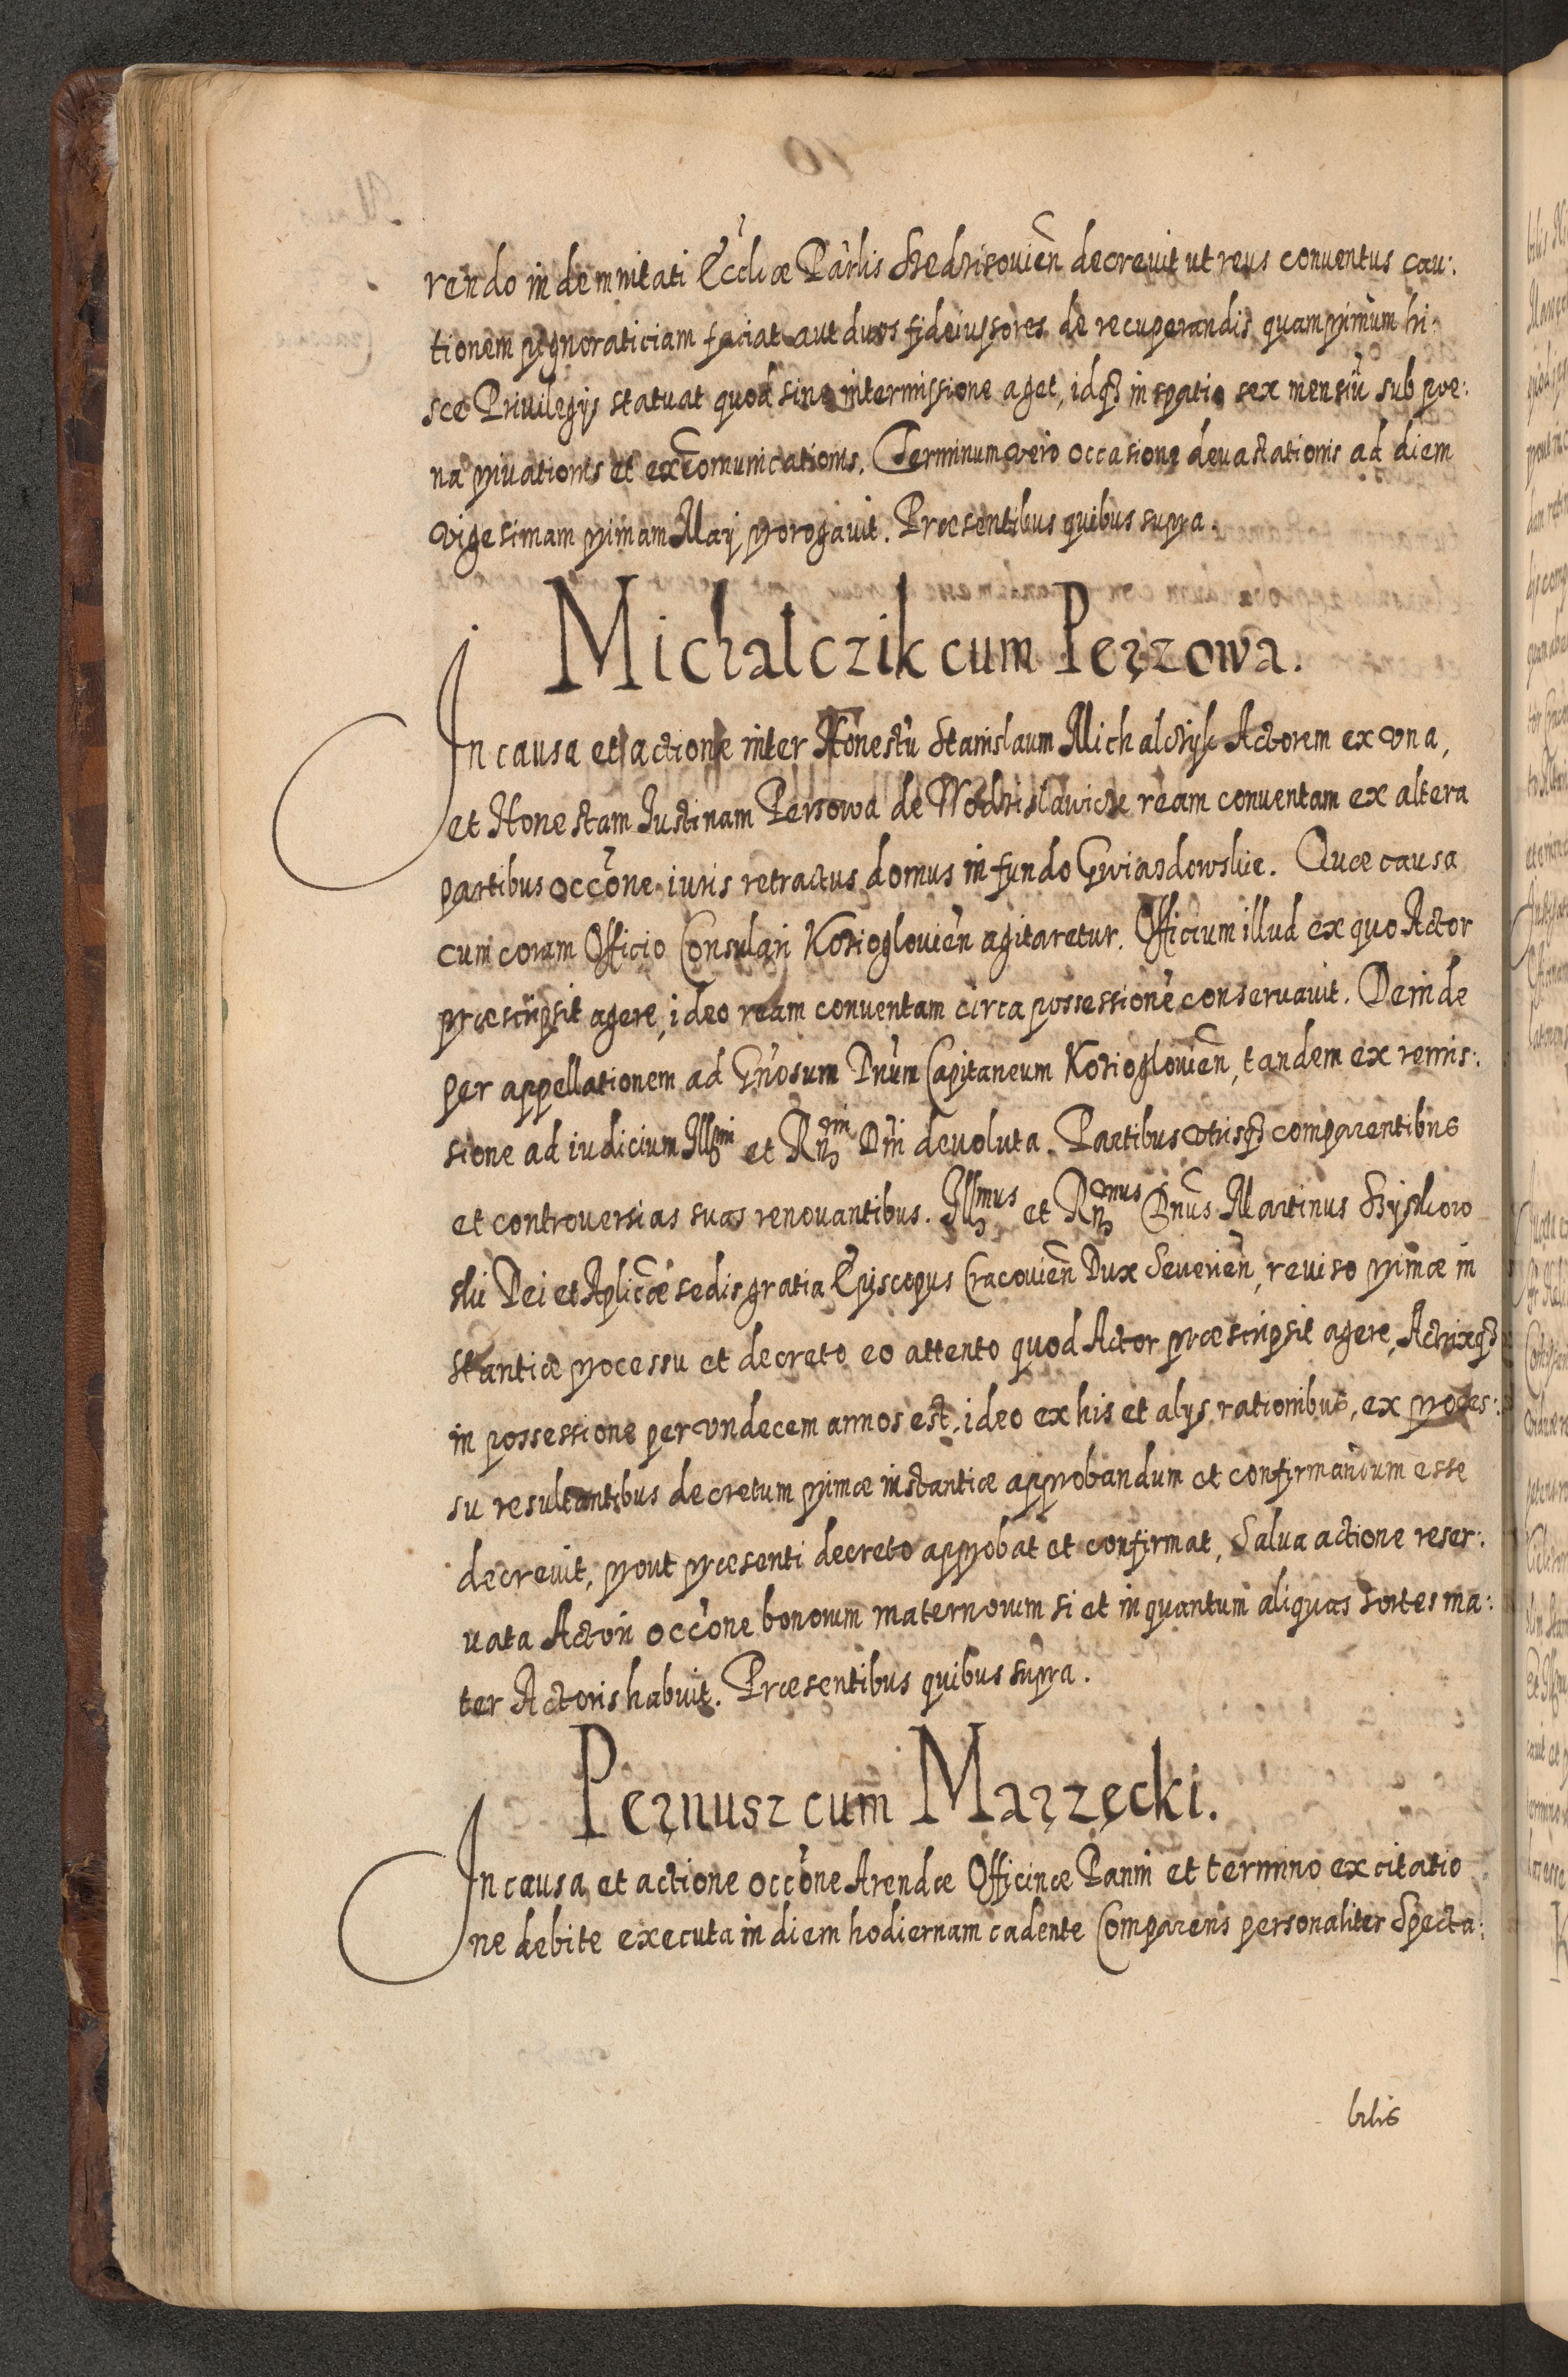 rendo indemnitati Eccliæ Parlis Skedrisouien decreuit ut reus conuentus cau:
tionem pignoraticiam faciat aut duos fideiussores de recuperandis quamprimum hi:
sce Priuilegys statuat quod sine intermissione aget, idq3 in spatio sex mensiu sub poe:
na priuationis et excomunicationis. Terminum vero occasione deuastationis ad diem
vigesimam primam Maÿ prorogauit. Præsentibus quibus supra.
Michalczik cum Perzowa.
In causa et actione inter Honestu Stanislaum Michalczyk Actorem ex vna,
et Honestam Justinam Perzowa de Wodzislawicze ream conuentam ex altera
partibus occone iuris retractus domus in fundo Gwiazdowskie. Quæ causa
cum coram Officio Consulari Kozioglouien agitaretur. Officium illud ex quo Actor
præscripsit agere, ideo ream conuentam circa possessione conseruauit. Deinde
per appellationem ad Gnosum Dnum Capitaneum Kozioglouien, tandem ex remis:
sione ad iudicium Illmi et Rmi Dni deuoluta. Partibus vtrisq3 comparentibus
et controuersias suas renouantibus. Illmus et Rndmus Dnus Martinus Szyszkow
ski Dei et Aplicæ sedis gratia Episcopus Cracouien Dux Seuerien, reuiso primæ in
stantiæ processu et decreto eo attento quod Actor præscripsit agere, Actrixq3
in possessione per vndecem annos est, ideo ex his et alys rationibus, ex proces:
su resultantibus decretum primæ instantiæ approbandum et confirmandum esse
decreuit, prout præsenti decreto approbat et confirmat, Salua actione reser:
uata Actori occone bonorum maternorum si et in quantum aliquas sortes ma:
ter Actoris habuit. Præsentibus quibus supra.
Pernusz cum Marzecki.
In causa et actione occone Arendæ Officinæ Panni et termino ex citatio
ne debite executa in diem hodiernam cadente Comparens personaliter Specta:
bilis